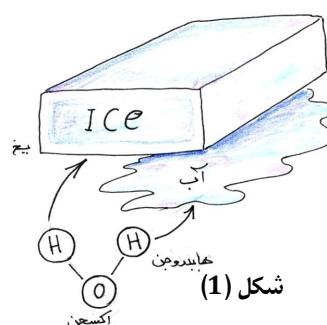 ICe
یخ
آب
H
H
هایدروجن
O
اکسجن
شکل (1)